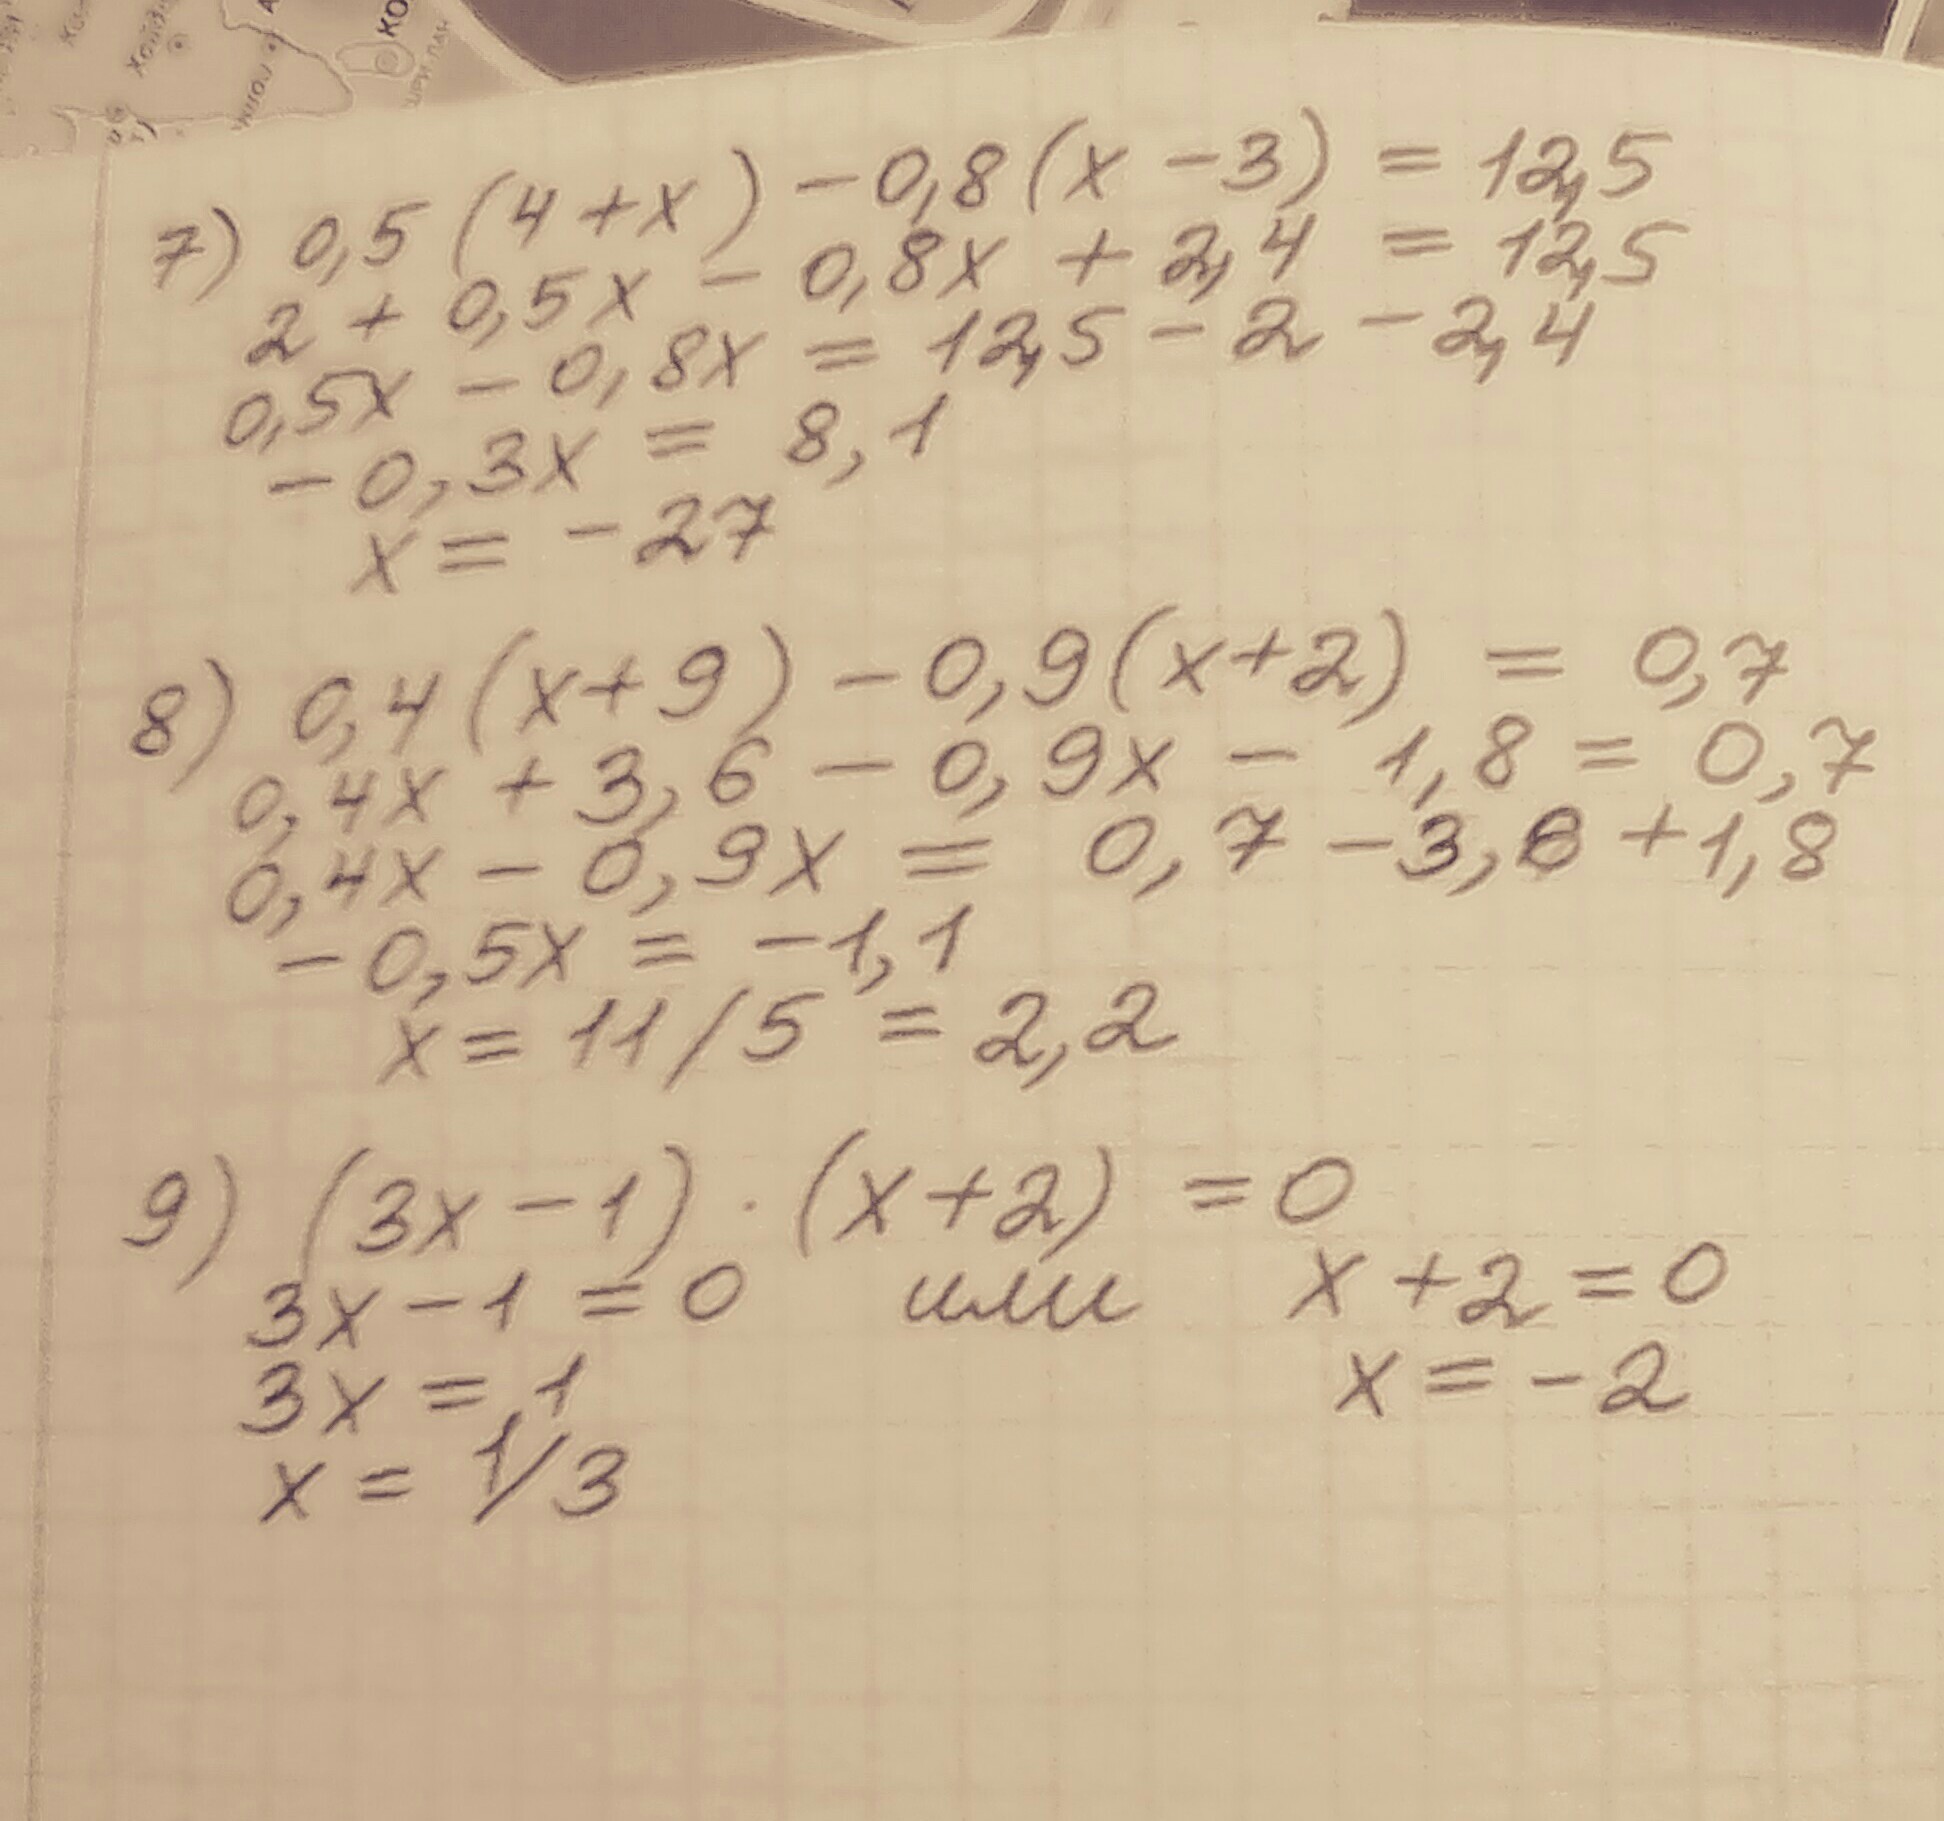 КО
7) 0,5(4+x)-0,8(x-3) = 12,5
2 + 0,5x - 0,8x + 2,4 = 12,5
0,5x - 0,8x = 12,5 - 2 - 2,4
-0,3x = 8,1
x = -27
8) 0,4(x+9)-0,9(x+2) = 0,7
0,4x + 3,6 - 0,9x - 1,8 = 0,7
0,4x - 0,9x = 0,7 - 3,6 + 1,8
-0,5x = -1,1
x = 11/5 = 2,2
9) (3x-1)·(x+2) = 0
3x-1 = 0 или x+2 = 0
3x = 1 x = -2
x = 1/3